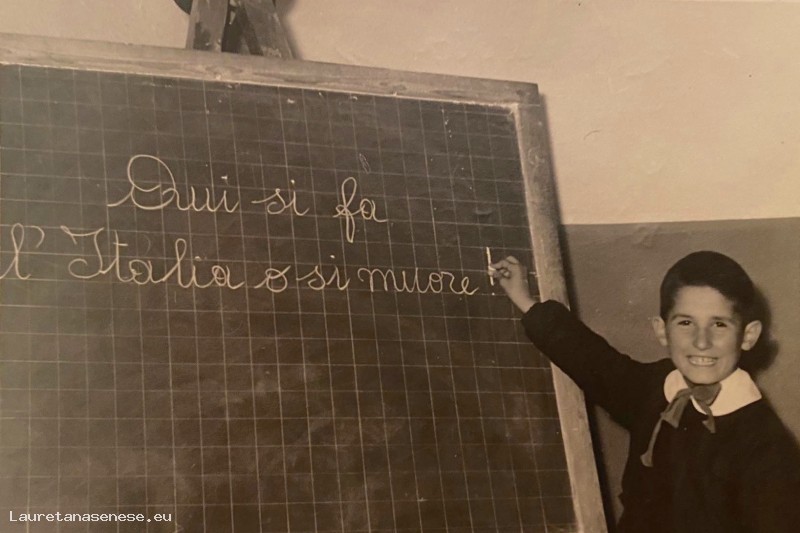 Qui si fa
l'Italia o si muore!
Lauretanasenese.eu